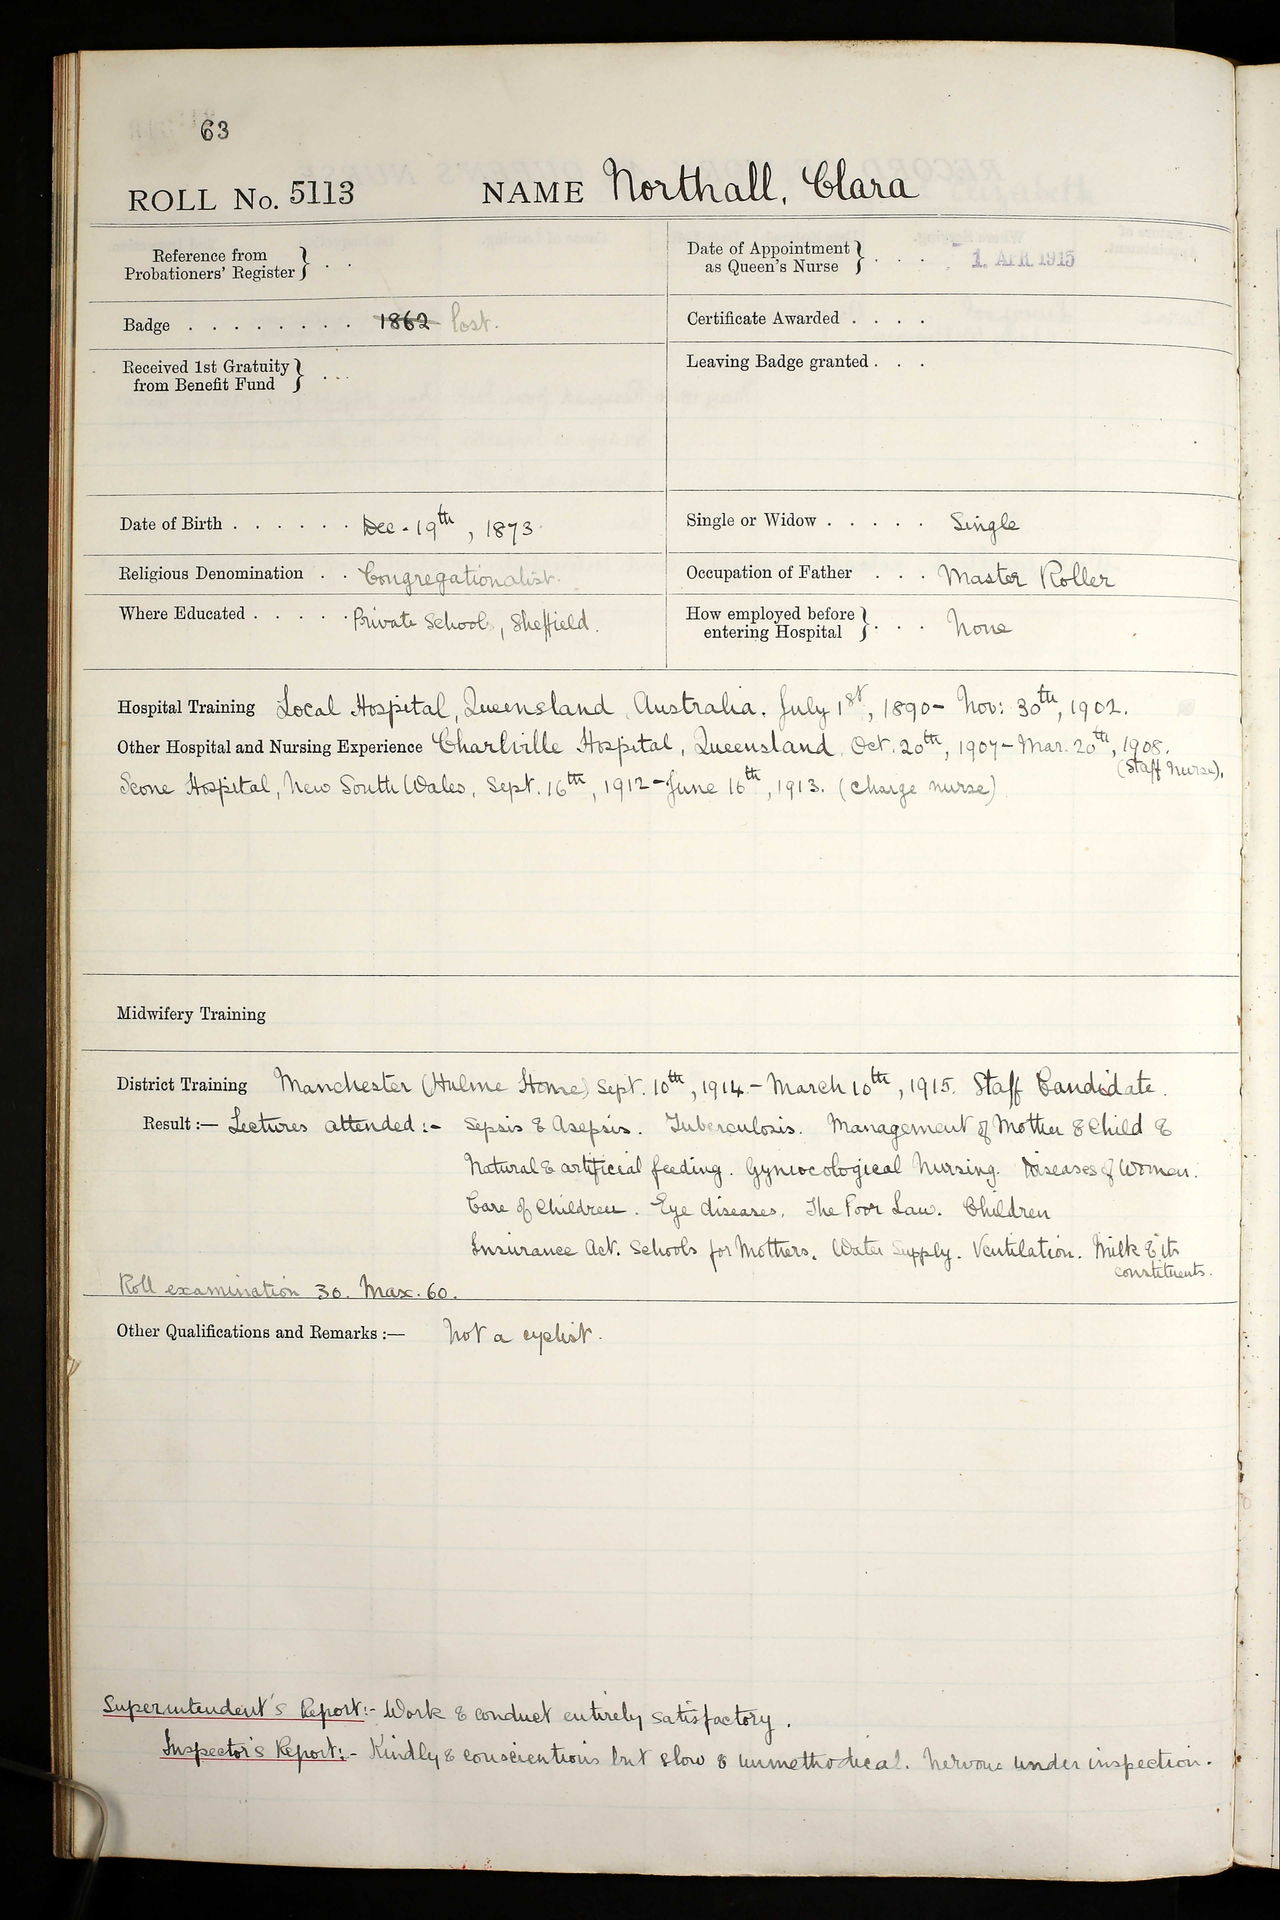 63
ROLL No. 5113 NAME Northall, Clara
Reference from
Probationers' Register } . .
Date of Appointment
as Queen's Nurse } . . . 1. APR. 1915
Badge . . . . . . . . 1862 lost.
Certificate Awarded . . . .
Received 1st Gratuity
from Benefit Fund } . . .
Leaving Badge granted . . .
Date of Birth . . . . . . Dec. 19th, 1873
Single or Widow . . . . . Single
Religious Denomination . . Congregationalist.
Occupation of Father . . . Master Roller
Where Educated . . . . . Private School, Sheffield.
How employed before
entering Hospital } . . . None
Hospital Training Local Hospital, Queensland, Australia. July 1st, 1890 - Nov: 30th, 1902.
Other Hospital and Nursing Experience Charlville Hospital, Queensland, Oct. 20th, 1907 - Mar. 20th, 1908.
(Staff Nurse).
Scone Hospital, New South Wales, Sept. 16th, 1912 - June 16th, 1913. (Charge nurse)
Midwifery Training
District Training Manchester (Hulme Home) Sept. 10th, 1914 - March 10th, 1915. Staff Candidate.
Result :— Lectures attended :- Sepsis & Asepsis. Tuberculosis. Management of Mother & Child &
Natural & artificial feeding. Gyniocological Nursing. Diseases of Women.
Care of Children. Eye diseases. The Poor Law. Children
Insurance Act. Schools for Mothers. Water Supply. Ventilation. Milk & its
constituents.
Roll examination 30. Max. 60.
Other Qualifications and Remarks :— Not a cyclist.
Superintendent's Report :- Work & conduct entirely satisfactory.
Inspector's Report :- Kindly & conscientious but slow & unmethodical. Nervous under inspection.